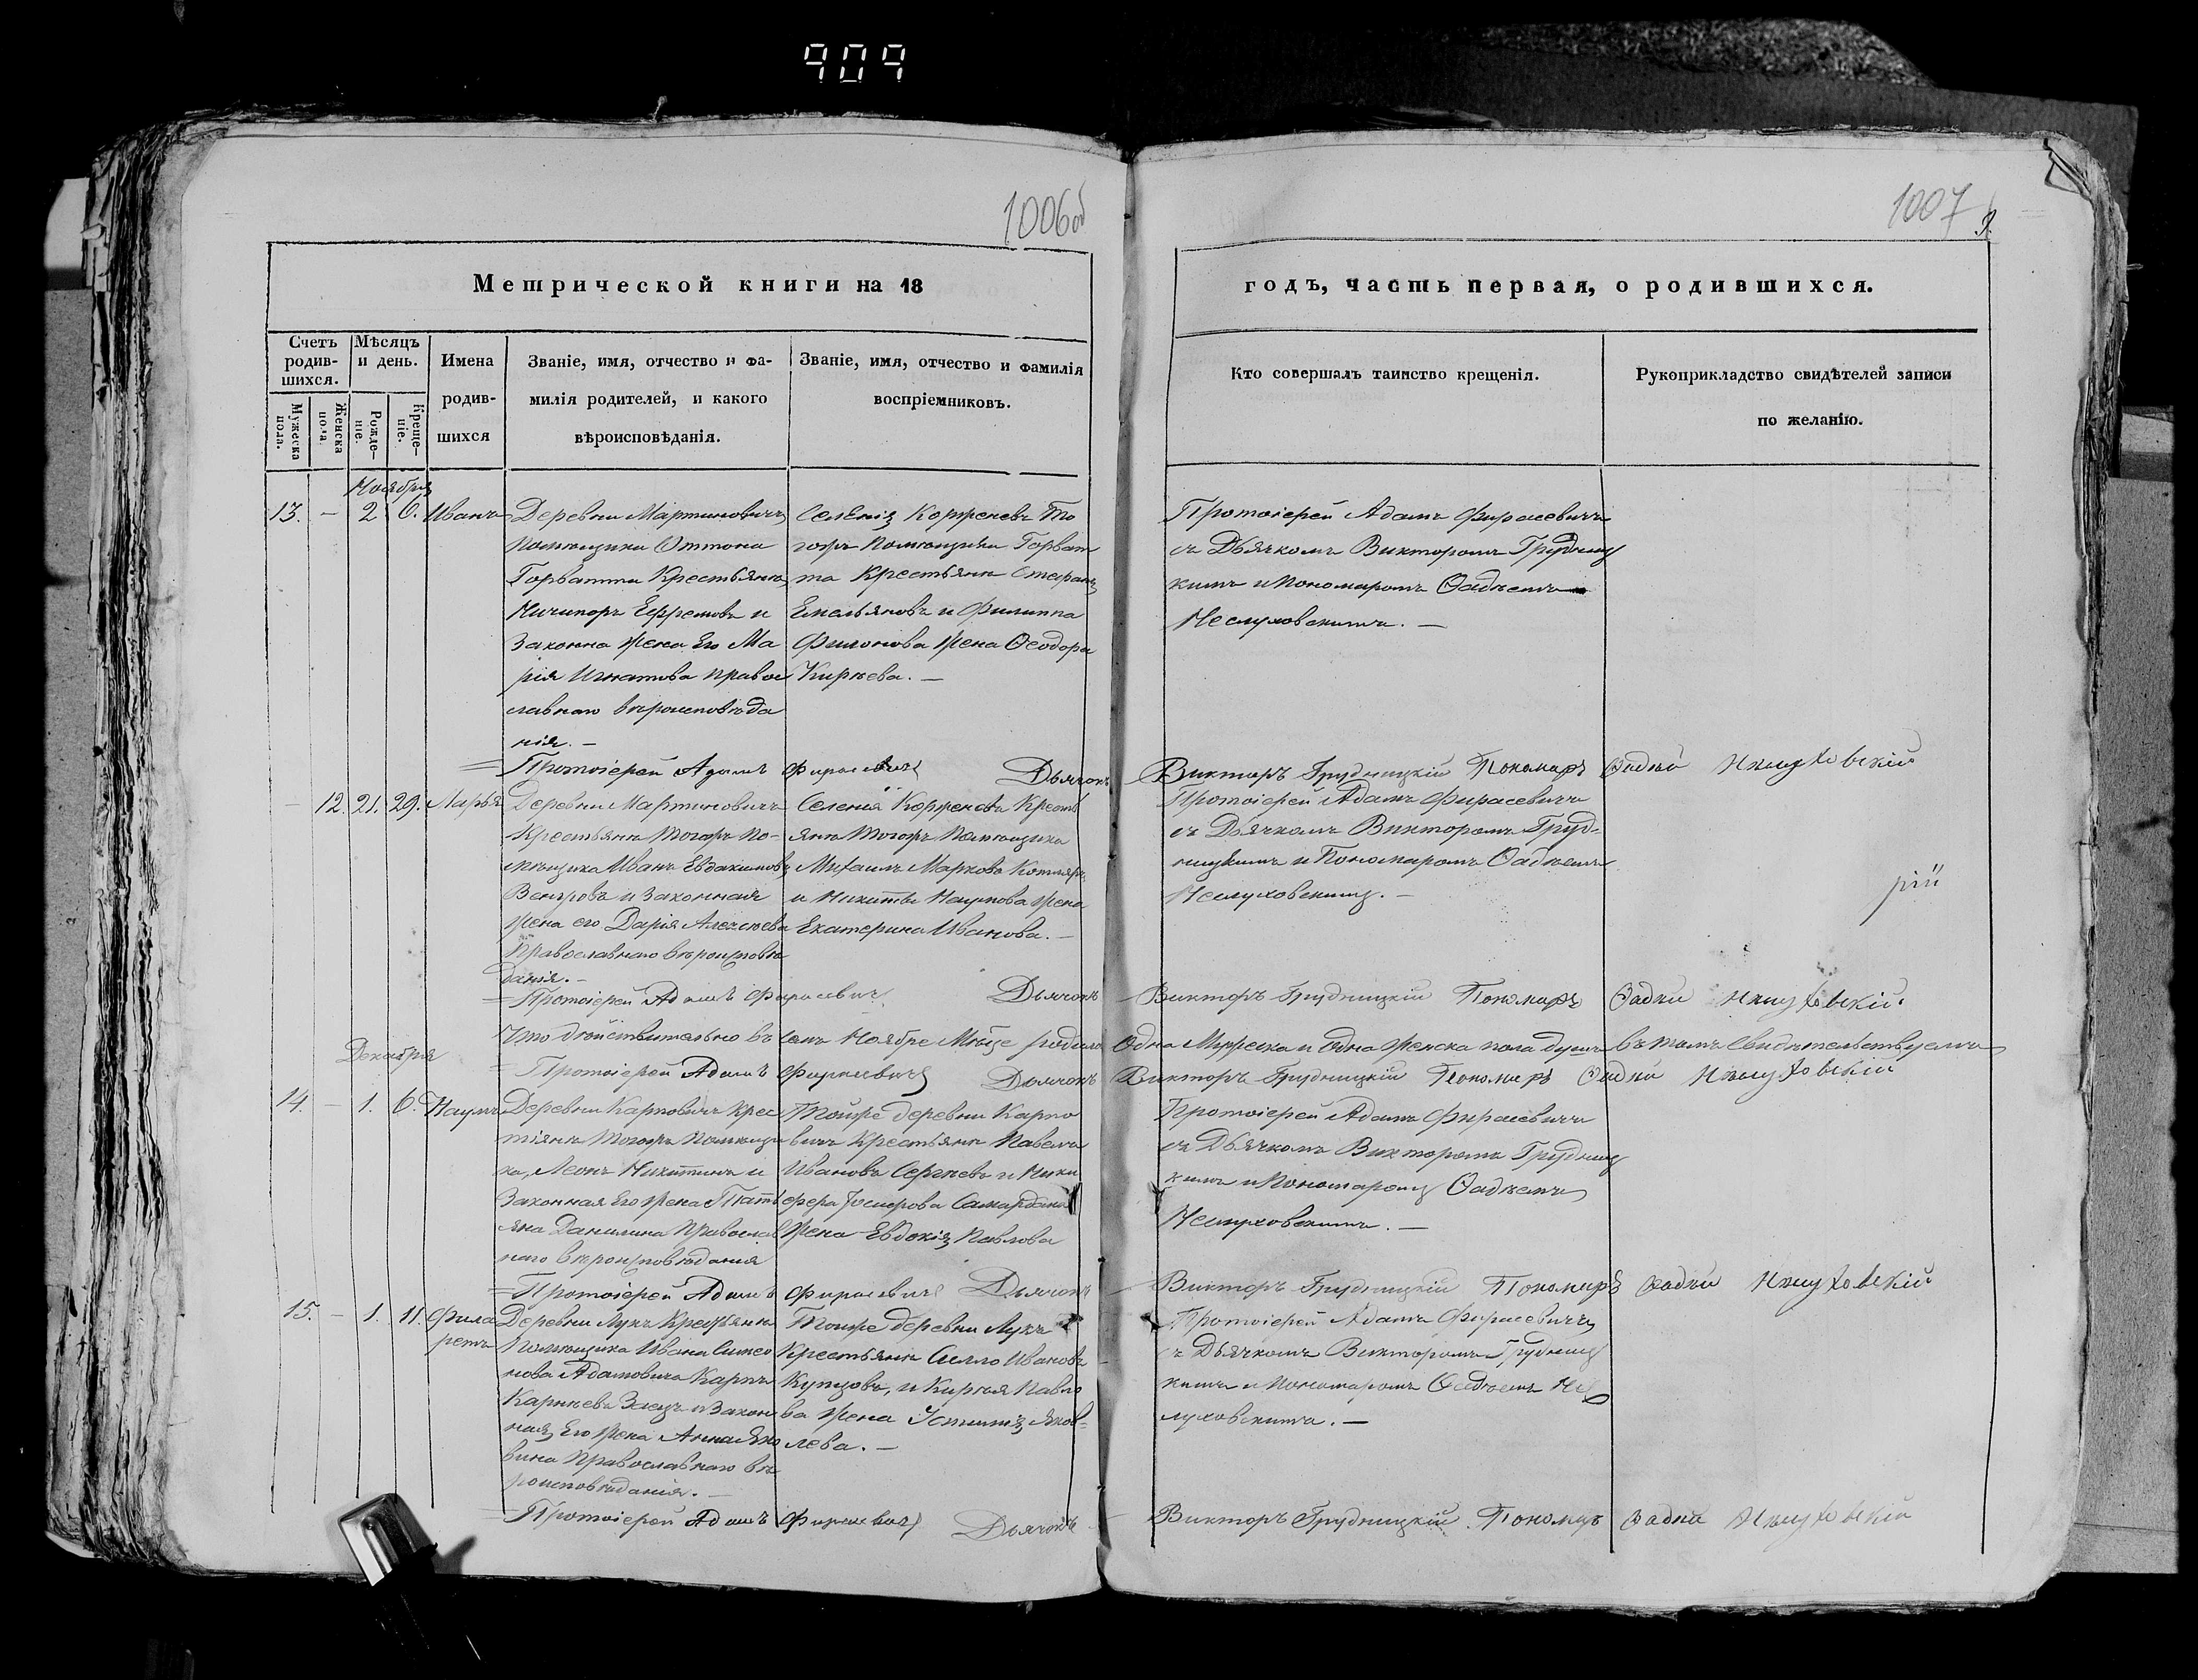 909
1006об
1007
9.
Метрической книги на 18
годъ, часть первая, о родившихся.
Счетъ родив-шихся.
Мужеска пола.
Женска пола.
Мѣсяцъ и день.
Рожде-ніе.
Креще-ніе.
Имена родив-шихся
Званіе, имя, отчество и фа-
милія родителей, и какого
вѣроисповѣданія.
Званіе, имя, отчество и фамилія
воспріемниковъ.
Кто совершалъ таинство крещенія.
Рукоприкладство свидѣтелей записи
по желанію.
Ноября
13. — 2 6. Иванъ
Деревни Мартиновичъ
Помѣщика Оттона
Горватта Крестьянинъ
Ничипоръ Ефремовъ и
Законна жена Его Ма
рія Игнатова правос
лавнаго вѣроисповѣда
нія. —
Селенія Корженевъ То
гожъ Помѣщика Горват
та Крестьянинъ Стефанъ
Емельяновъ и Филиппа
Филонова жена Ѳеодора
Кирѣева. —
Протоіерей Адамъ Фирасевичъ
съ Дьячкомъ Викторомъ Грудниц
кимъ и Пономаромъ Ѳадѣемъ
Неслуховскимъ. —
Протоіерей Адамъ Фирасевичъ Дьячокъ Викторъ Грудницкій Пономаръ Ѳадѣй Неслуховскій
— 12. 21. 29. Дарья
Деревни Мартиновичъ
Крестьянинъ Тогожъ По-
мѣщика Иванъ Евдакимовъ
и Законная
жена его Дарія Алексѣева
Православнаго вѣроисповѣ
данія. —
Селенія Корженевъ Кресть
янинъ Тогожъ Помѣщика
Михаилъ Марковъ
и Никиты Наумова жена
Екатерина Иванова. —
Протоіерей Адамъ Фирасевичъ
съ Дьячкомъ Викторомъ Груд-
ницкимъ и Пономаромъ Ѳадѣемъ
Неслуховскимъ. —
рій
Протоіерей Адамъ Фирасевичъ Дьячокъ Викторъ Грудницкій Пономаръ Ѳадѣй Неслуховскій.
Что дѣйствительно въ семъ Ноябре Мѣсяце родило Одна Мужеска и Одна женска пола душъ въ томъ Свидѣтельствуемъ
Протоіерей Адамъ Фирасевичъ Дьячокъ Викторъ Грудницкій Пономаръ Ѳадѣй Неслуховскій
Декабря
14. — 1. 6. Наумъ
Деревни Карповичъ Крес
тіянинъ Тогожъ Помѣщи
ка, Леонъ Никитинъ и
Законная Его жена Татъ
яна Данилина Православ
наго вѣроисповѣданія
Тойже деревни Карпо
вичъ Крестьянинъ Павелъ
Ивановъ Сергѣевъ и Ники
фера
жена Евдокія Павлова
Протоіерей Адамъ Фирасевичъ
съ Дьячкомъ Викторомъ Грудниц
кимъ и Пономаромъ Ѳадѣемъ
Неслуховскимъ. —
Протоіерей Адамъ Фирасевичъ Дьячокъ Викторъ Грудницкій Пономаръ Ѳадѣй Неслуховскій
15. — 1. 11. Фила
ретъ
Деревни Лукъ Крестьянинъ
Помѣщика Ивана Симео
нова Адамовича Карпъ
Карнѣевъ Заецъ и Закон
ная Его жена Анна Яко
вина Православнаго вѣ
роисповѣданія. —
Тойже деревни Лукъ
Крестьянинъ Ивановъ
Купцовъ, и Кирѣя Павло
ва жена Устинія Яков-
лева. —
Протоіерей Адамъ Фирасевичъ
съ Дьячкомъ Викторомъ Грудниц
кимъ и Пономаромъ Ѳадѣемъ Не
слуховскимъ. —
Протоіерей Адамъ Фирасевичъ Дьячокъ Викторъ Грудницкій Пономаръ Ѳадѣй Неслуховскій